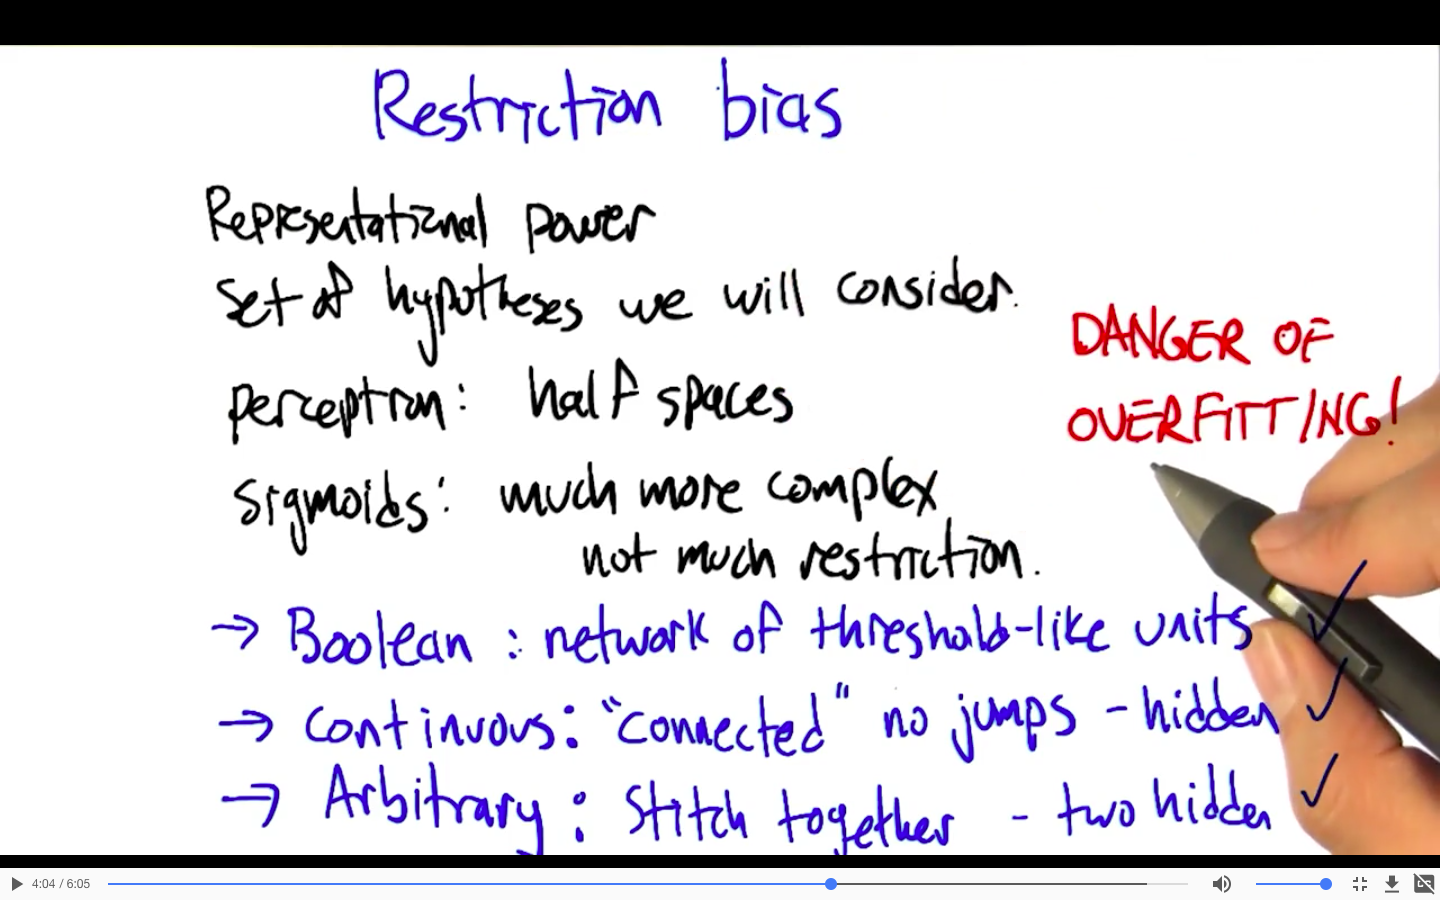 Restriction bias
Representational power
Set of hypotheses we will consider.
perceptron: half spaces
Sigmoids: much more complex
not much restriction.
DANGER OF
OVERFITTING!
→ Boolean: network of threshold-like units ✓
→ continuous: "connected" no jumps - hidden ✓
→ Arbitrary: Stitch together - two hidden ✓
4:04 / 6:05